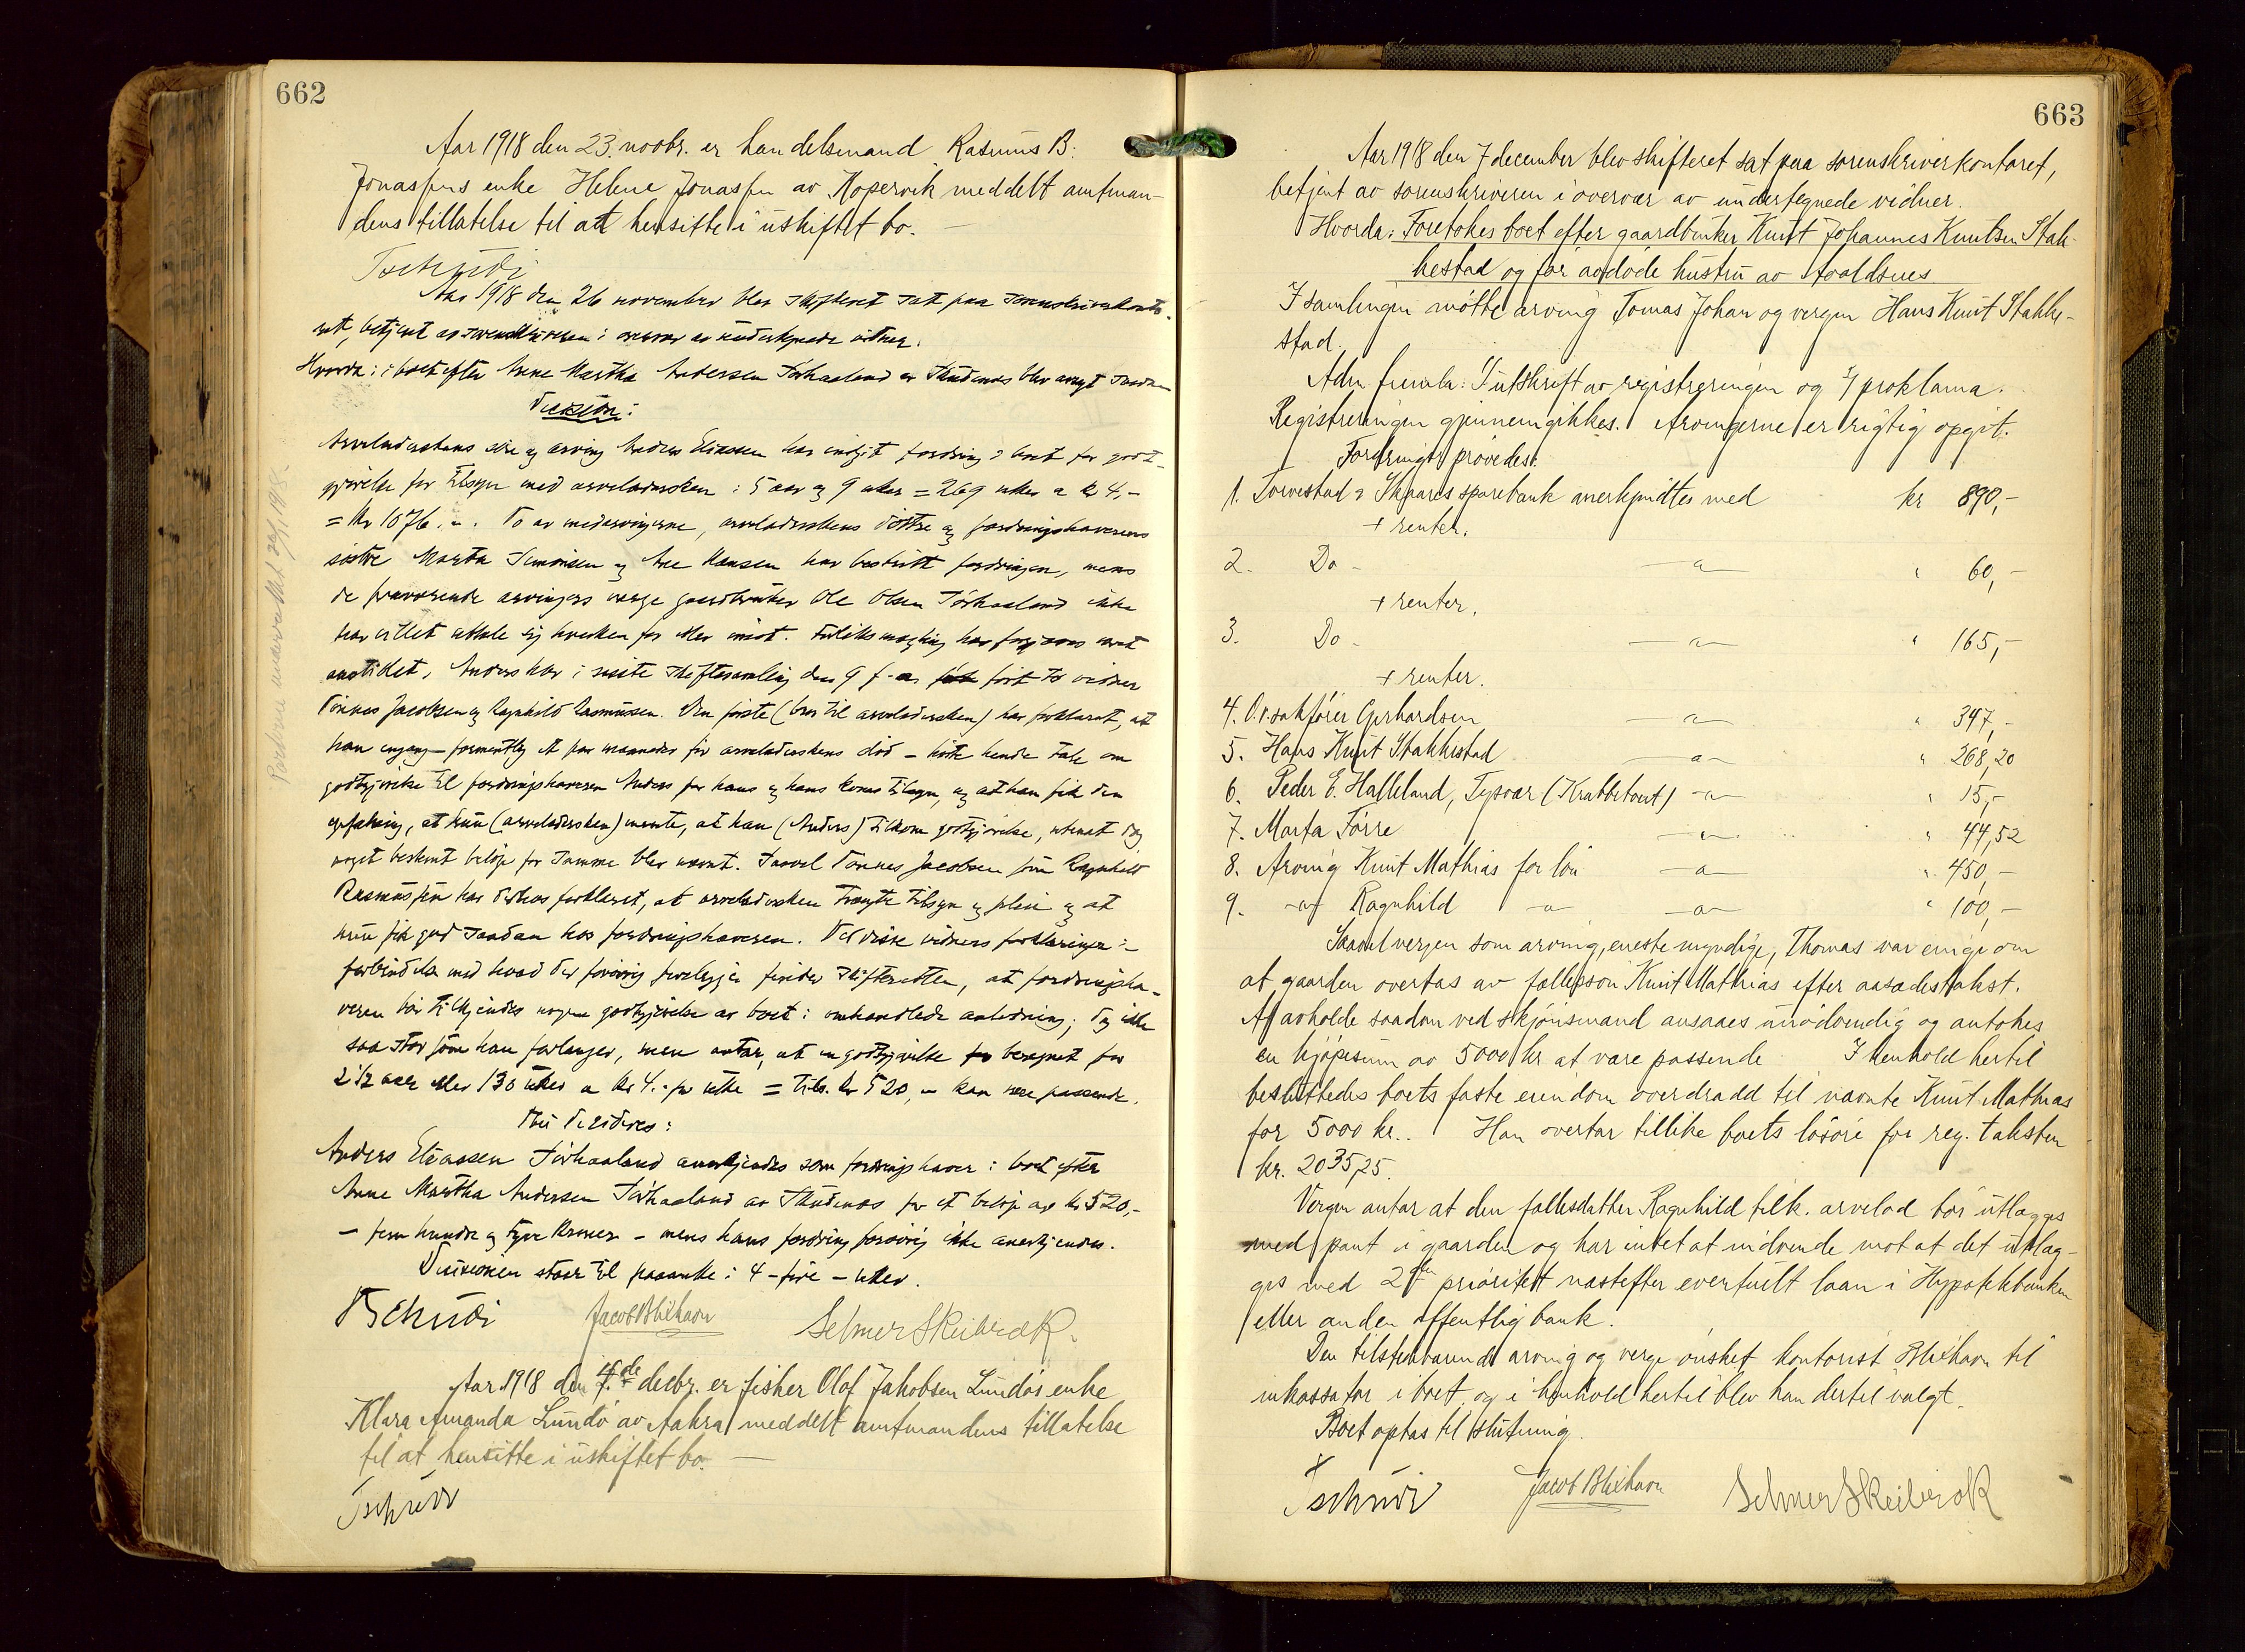 662
Aar 1918 den 23. novbr. er handelsmand Rasmus B.
Jonassens enke Helene Jonassen av Kopervik meddelt amtman-
dens tillatelse til at hensitte i uskiftet bo. —
Tschudi
Aar 1918 den 26 november blev skifteret sat paa sorenskriverkonto-
ret, betjent av sorenskriveren i overvær av undertegnede vidner.
Hvorda: i boet efter Anne Martha Andersen Tørhaaland av Skudenes blev avsagt saadan
Decision:
Arveladerskens søn og arving Anders Eliassen har indgit fordring i boet for godt-
gjørelse for tilsyn med arveladersken i 5 aar og 9 uker = 269 uker a kr 4,-
= kr 1076,-. To av medarvingerne, arveladerskens døttre og fordringshaverens
søstre Marta Simonsen og Ane Hansen har bestridt fordringen, mens
de fraværende arvingers verge gaardbruker Ole Olsen Tørhaaland ikke
har villet uttale sig hverken for eller imot. Forliksmægling har forgjæves været
anstillet. Anders har i siste skiftesamling den 9 f. m. ført to vidner
Tønnes Jacobsen og Ragnhild Rasmussen. Den første (bror til arveladersken) har forklaret, at
han engang – formentlig et par maaneder før arveladerskens død – hørte hende tale om
godtgjørelse til fordringshaveren Anders for hans og hans kones tilsyn, og at han fik den
opfatning, at hun (arveladersken) mente, at han (Anders) tilkom godtgjørelse, uten at dog
noget bestemt beløp for samme blev nævnt. Saavel Tønnes Jacobsen som Ragnhild
Rasmussen har derhos forklaret, at arveladersken trængte tilsyn og pleie og at
hun fik god saadan hos fordringshaveren. Ved disse vidners forklaringer i
forbindelse med hvad der forøvrig foreligger finder skifteretten, at fordringsha-
veren bør tilkjendes nogen godtgjørelse av boet i omhandlede anledning; dog ikke
saa stor som han forlanger, men antar, at en godtgjørelse beregnet for
2 1/2 aar eller 130 uker a kr 4.- pr uke = tils. kr 520,- kan være passende.
Thi decideres:
Anders Eliassen Tørhaaland anerkjendes som fordringshaver i boet efter
Anne Martha Andersen Tørhaaland av Skudenes for et beløp av kr 520,-
– fem hundre og tyve kroner – mens hans fordring forøvrig ikke anerkjendes.
Decisionen staar til paaanke i 4 – fire – uker.
Tschudi Jacob Blikhavn Selmer Skeibrok.
Aar 1918 den 4.de decbr. er fisker Olaf Jakobsen Lundøs enke
Klara Amanda Lundø av Aakra meddelt amtmandens tillatelse
til at hensitte i uskiftet bo. —
Tschudi
663
Aar 1918 den 7 december blev skifteret sat paa sorenskriverkontoret,
betjent av sorenskriveren i overvær av undertegnede vidner.
Hvorda: Foretokes boet efter gaardbruker Knut Johannes Knutsen Stak-
kestad og før avdøde hustru av Avaldsnes
I samlingen møtte arving Tomas Johan og vergen Hans Knut Stakke-
stad.
Adm. fremla: Utskrift av registreringen og proklama.
Registreringen gjennemgikkes. Arvingerne er rigtig opgit.
Fordringer prøvedes:
1. Torvestad & Skaares sparebank anerkjendtes med kr 890,-
+ renter.
2. Do - —"— " 60,-
+ renter.
3. Do - —"— " 165,-
+ renter.
4. O.r.sakfører Gerhardsen —"— " 347,-
5. Hans Knut Stakkestad —"— " 268,20
6. Peder E. Halleland, Tysvær (Krabbetveit) —"— " 15,-
7. Marta Førre —"— " 44,52
8. Arving Knut Mathias for løn —"— " 450,-
9. —"— Ragnhild —"— —"— " 100,-
Saavel vergen som arving, eneste myndige, Thomas var enige om
at gaarden overtas av fællesson Knut Mathias efter aasædestakst.
At avholde saadan ved skjønsmænd ansaaes unødvendig og antokes
en kjøpesum av 5000 kr at være passende. I henhold hertil
besluttedes boets faste eiendom overdradd til nævnte Knut Mathias
for 5000 kr. Han overtar tillike boets løsøre for reg. taksten
kr. 2035,25.
Vergen antar at den fællesdatter Ragnhild tilk. arvelod bør utlægges
med pant i gaarden og har intet at indvende mot at det utlæg-
ges med 2den prioritet næstefter eventuelt laan i Hypothekbanken
eller anden offentlig bank.
Den tilstedeværende arving og verge ønsket kontorist Blikhavn til
inkassator i boet, og i henhold hertil blev han dertil valgt.
Boet optas til slutning.
Tschudi Jacob Blikhavn Selmer Skeibrok